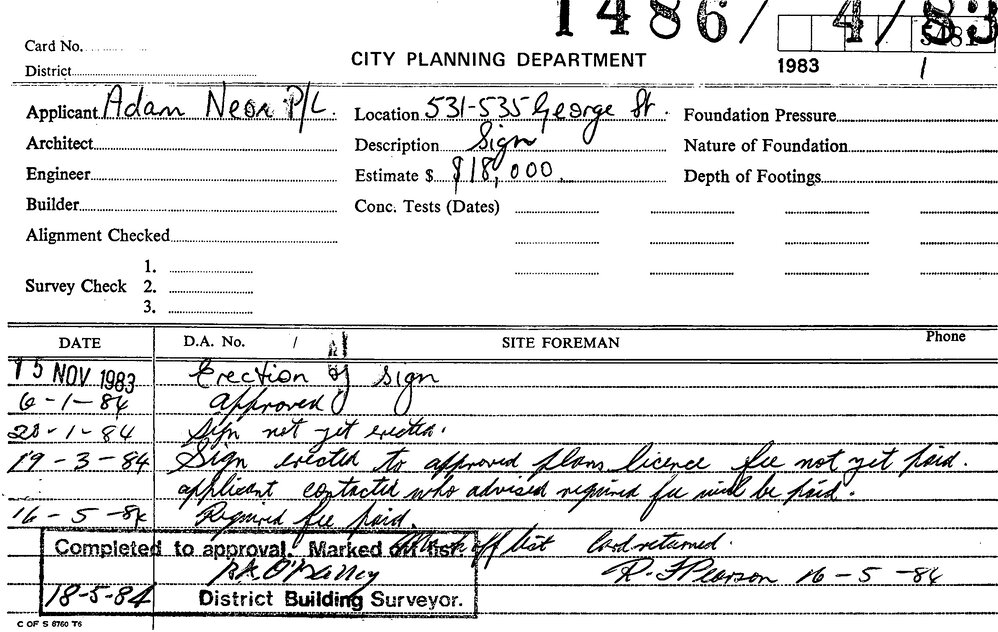 1486/ 4/83
5481
Card No.
CITY PLANNING DEPARTMENT
1983 /
District
Applicant Adam Neon P/L. Location 531-535 George St. Foundation Pressure
Architect Description Sign Nature of Foundation
Engineer Estimate $ $18,000. Depth of Footings
Builder Conc. Tests (Dates)
Alignment Checked
1.
Survey Check 2.
3.
DATE D.A. No. / SITE FOREMAN Phone
15 NOV 1983 Erection of sign
6-1-84 approved
23-1-84 Sign not yet erected.
19-3-84 Sign erected to approved plans licence fee not yet paid.
applicant contacted who advised required fee will be paid.
16-5-84 Required fee paid.
Completed to approval. Marked off list. Mark off list Card returned.
R. F Pearson 16-5-84
18-5-84 District Building Surveyor.
C OF S 8760 T6